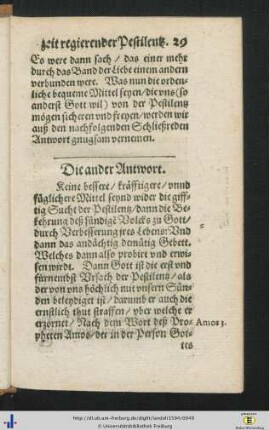 zeit regierender Pestilentz. 29
Es were dann sach / das einer mehr
durch das Band der Liebe einem andern
verbunden were. Was nun die ordenliche
bequeme Mittel seyen / die vns (so
anderst Gott wil) von der Pestilentz
mögen sicheren vnd freyen / werden wir
auß den nachfolgenden Schließreden
Antwort gnugsam vernemen.
Die ander Antwort.
Keine bessere / kräfftigere / vnnd
füglichere Mittel seynd wider die gifftig
Sucht der Pestilentz / dann die Bekehrung
deß sündigē Volcks zu Gott /
durch Verbesserung jres Lebens: Vnd
dann das andächtig demütig Gebett.
Welches dann also probirt vnd erwisen
wirdt. Dann Gott ist die erst vnd
fürnembst Vrsach der Pestilentz / als
der von vns höchlich mit vnsern Sünden
beleydiget ist / darumb er auch die
ernstlich thut straffen / vber welche er
erzörnet / Nach dem Wort deß Propheten
Amos / der in der Person Got-
Amos 3.
tes
http://dl.ub.uni-freiburg.de/diglit/landol1594/0049
© Universitätsbibliothek Freiburg